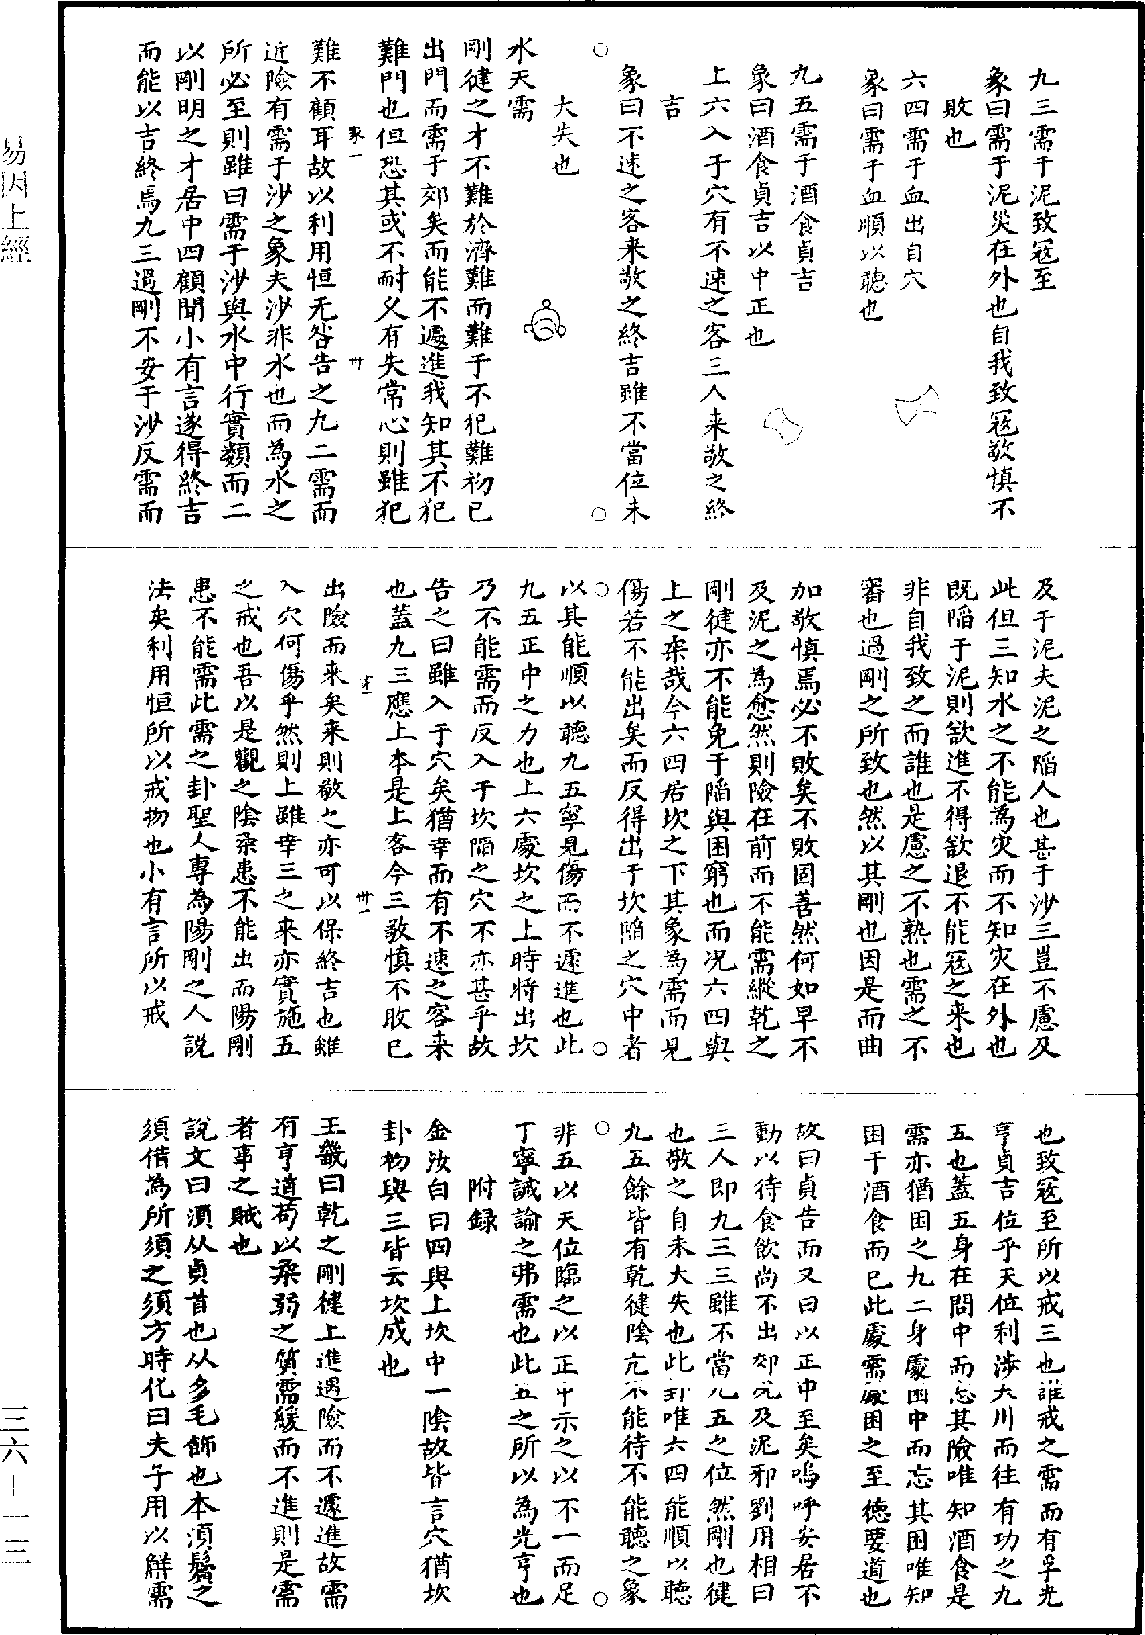 易因上經
三六—一三
九三需于泥致寇至
象曰需于泥災在外也自我致寇敬慎不
敗也
六四需于血出自穴
象曰需于血順以聽也
九五需于酒食貞吉
象曰酒食貞吉以中正也
上六入于穴有不速之客三人来敬之終
吉
象曰不速之客来敬之終吉雖不當位未
大失也
水天需
剛健之才不難於濟難而難于不犯難初已
出門而需于郊矣而能不遽進我知其不犯
難門也但恐其或不耐久有失常心則雖犯
難不顧耳故以利用恒无咎告之九二需而
近險有需于沙之象夫沙非水也而為水之
所必至則雖曰需于沙與水中行實類而二
以剛明之才居中四顧聞小有言遂得終吉
而能以吉終焉九三過剛不安于沙反需而
及于泥夫泥之陷人也甚于沙三豈不慮及
此但三知水之不能為灾而不知灾在外也
既陷于泥則欲進不得欲退不能寇之来也
非自我致之而誰也是慮之不熟也需之不
審也過剛之所致也然以其剛也因是而曲
加敬慎焉必不敗矣不敗固善然何如早不
及泥之為愈然則險在前而不能需縱乾之
剛健亦不能免于陷與困窮也而况六四與
上之柔哉今六四居坎之下其象為需而見
傷若不能出矣而反得出于坎陷之穴中者
以其能順以聽九五寧見傷而不遽進也此
九五正中之力也上六處坎之上時將出坎
乃不能需而反入于坎陷之穴不亦甚乎故
告之曰雖入于穴矣猶幸而有不速之客来
也蓋九三應上本是上客今三敬慎不敗已
出險而来矣来則敬之亦可以保終吉也雖
入穴何傷乎然則上雖幸三之来亦實施五
之戒也吾以是觀之陰柔患不能出而陽剛
患不能需此需之卦聖人專為陽剛之人說
法矣利用恒所以戒初也小有言所以戒
也致寇至所以戒三也誰戒之需而有孚光
亨貞吉位乎天位利涉大川而往有功之九
五也蓋五身在問中而忘其險唯知酒食是
需亦猶困之九二身處困中而忘其困唯知
困于酒食而已此處需處困之至德要道也
故曰貞告而又曰以正中至矣嗚呼安居不
動以待食飲尚不出郊况及泥邪劉用相曰
三人即九三三雖不當九五之位然剛也健
也敬之自未大失也此卦唯六四能順以聽
九五餘皆有乾健陰亢不能待不能聽之象
非五以天位臨之以正中示之以不一而足
丁寧誡諭之弗需也此五之所以為光亨也
附録
金汝白曰四與上坎中一陰故皆言穴猶坎
卦初與三皆云坎成也
王畿曰乾之剛健上進遇險而不遽進故需
有亨道苟以柔弱之質需緩而不進則是需
者事之賊也
說文曰湏从貞首也从多毛飾也本湏鬚之
須借為所須之須方時化曰夫子用以觧需